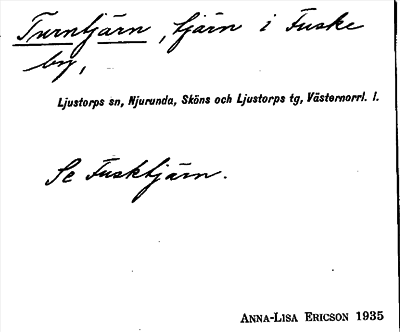 Turntjärn, tjärn i Fuske
by,
Ljustorps sn, Njurunda, Sköns och Ljustorps tg, Västernorrl. l.
Se Fusktjärn.
ANNA-LISA ERICSON 1935